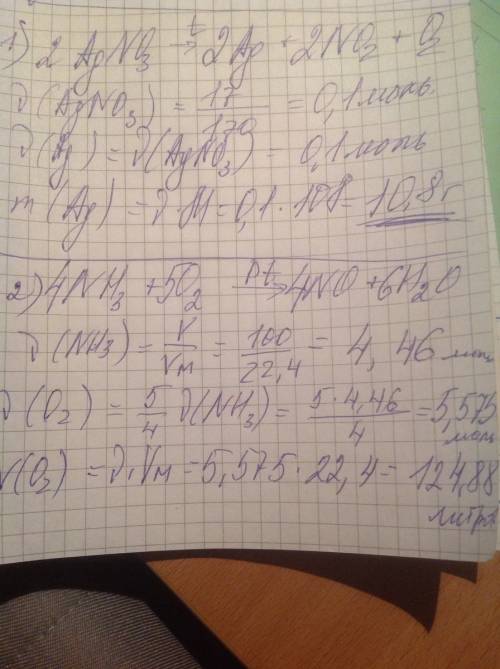 1) 2AgNO₃ →ᵗ 2Ag + 2NO₂ + O₂
ν(AgNO₃) = 17/170 = 0,1 моль.
ν(Ag) = ν(AgNO₃) = 0,1 моль
m(Ag) = ν·M = 0,1·108 = 10,8 г
2) 4NH₃ + 5O₂ →ᴾᵗ 4NO + 6H₂O
ν(NH₃) = V/Vм = 100/22,4 = 4,46 моль
ν(O₂) = 5/4 ν(NH₃) = 5·4,46/4 = 5,575 моль
V(O₃) = ν·Vм = 5,575·22,4 = 124,88 литров